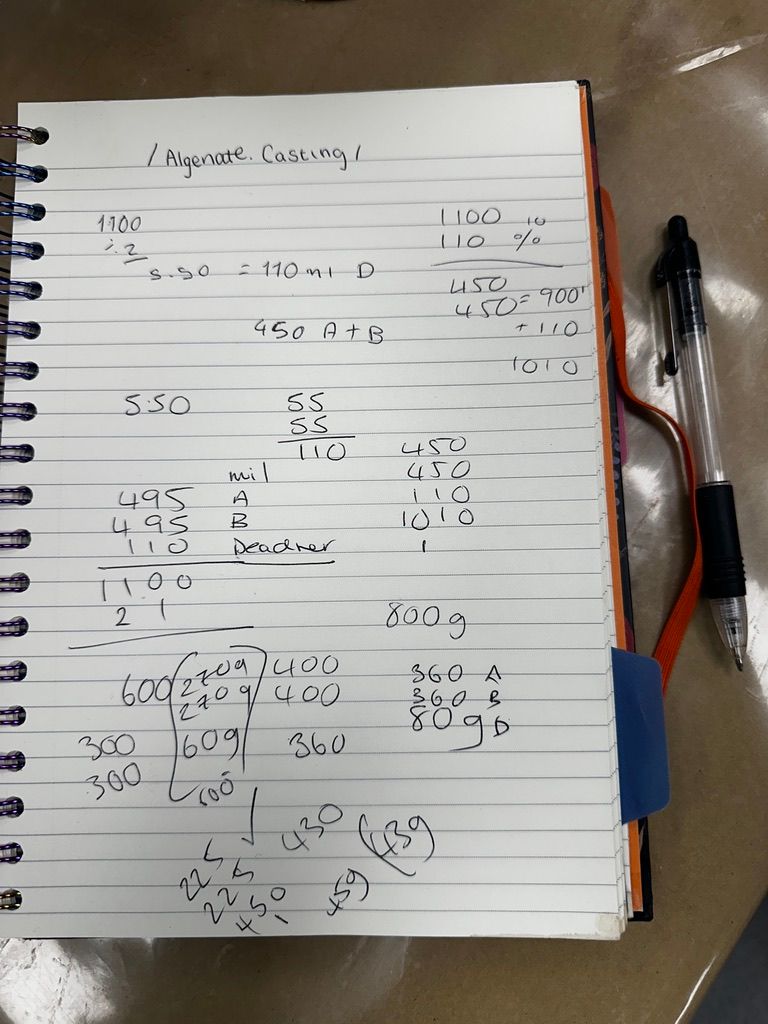 / Algenate. Casting /
1100
÷ 2
5.50 = 110 ml D
1100 10
110 %
450
450 = 900
+ 110
1010
450 A + B
5.50
55
55
110
450
450
110
1010
1
mil
495 A
495 B
110 Deadner
1100
2 1
800g
600
270g
270g
60g
600
300
300
400
400
360
360 A
360 B
80g D
225
225
450
430
(43g
45g